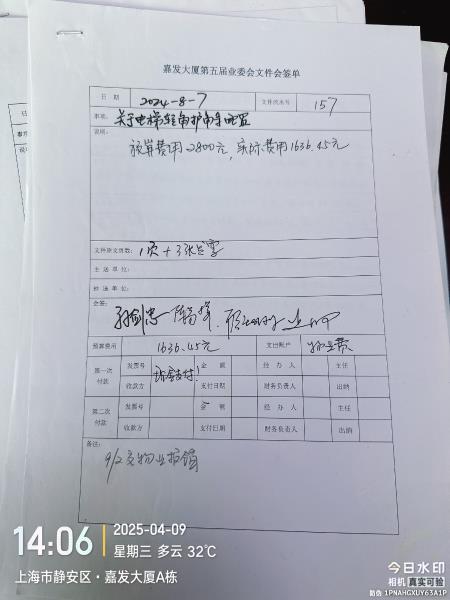 嘉发大厦第五届业委会文件会签单
日 期 2024-8-7 文件流水号 157
事项: 关于电梯
说明:
预算费用2800元, 实际费用1636.45元
文件原文页数: 1页+3张
主 送 单 位:
抄 送 单 位:
会签:
预算费用 1636.45元 支出账户
第一次付款 发票号 现金支付 金 额 经 办 人 主任
收款方 支付日期 财务负责人 出纳
第二次付款 发票号 金 额 经 办 人 主任
收款方 支付日期 财务负责人 出纳
备注:
9/2交物业报销
14:06 2025-04-09
星期三 多云 32℃
上海市静安区·嘉发大厦A栋
今日水印
相机 真实可验
防伪 1PNAHGXUY63A1P